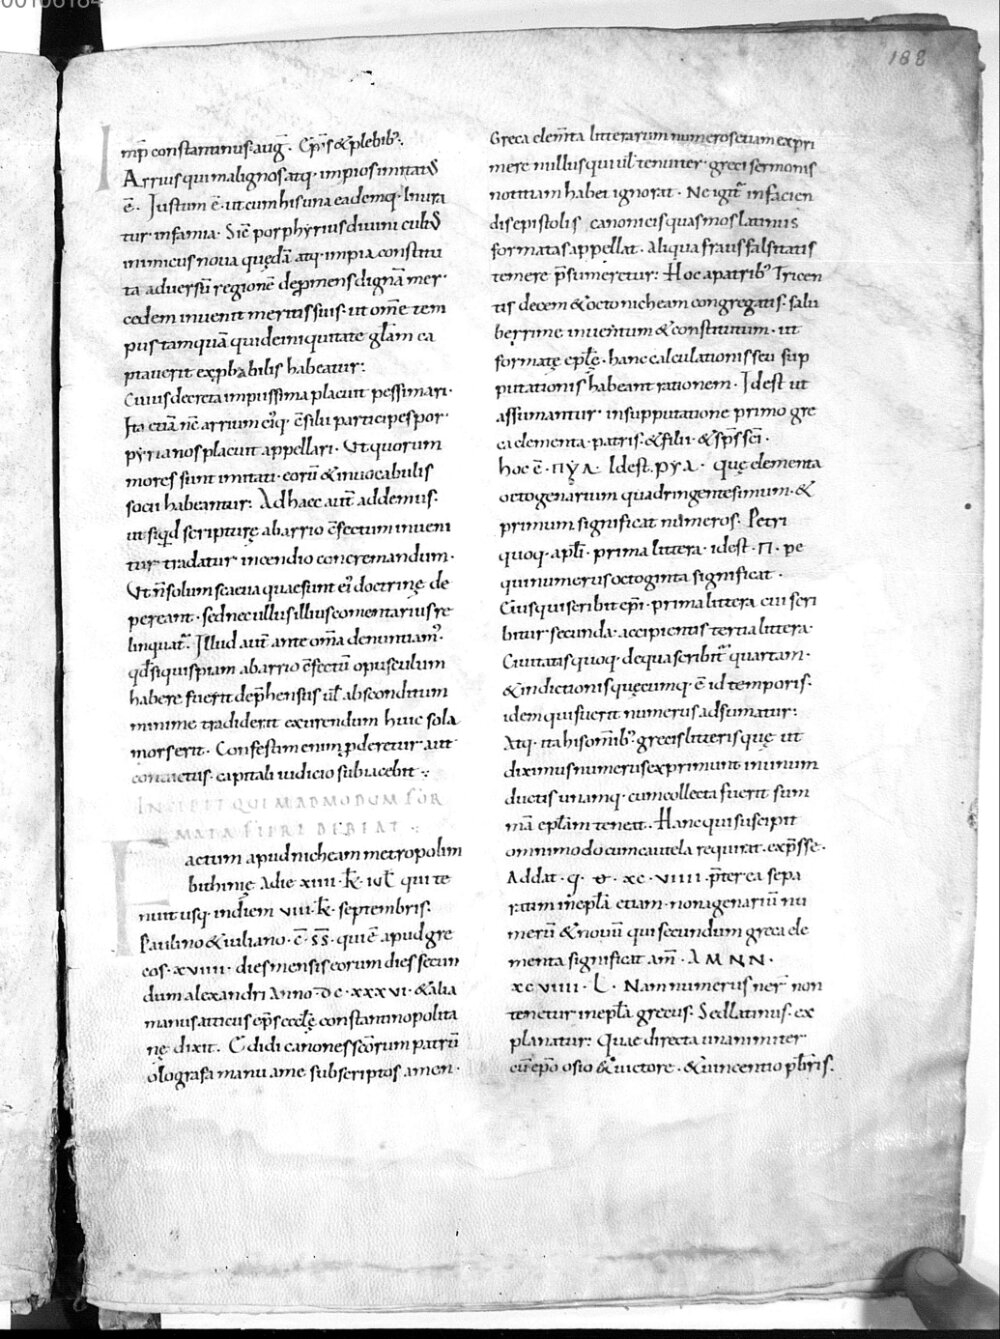 188
Imp̄ constantinus auḡ. Ep̄is & plebib;.
Arrius qui malignos atq· impios imitatus
ē. Iustum ē· ut cum his una eademq· Inura
tur infamia. Sic̄ porphyrius diuini cultus
inimicus noua quędā atq· impia constitu
ta aduersū regionē depmens dignā mer
cedem inuenit meritis suis· ut om̄e tem
pus tamquā quidem iniquitate gl̄am ca
ptauerit exprbabilis habeatur:
Cuius decreta impiissima placuit pessimari·
Ita etiā nc̄ arrium eiq· c̄silii participes por
pyrianos placuit appellari. Ut quorum
mores sunt imitati· eorū & in uocabulis
socii habeantur: Ad haec aut̄ addemus·
ut siqd scripturę ab arrio c̄fectum inueni
tur· tradatur incendio concremandum·
Ut n̄ solum scaeua quae sunt ei; doctrinę de
pereant· sed nec ullus illius comentarius re
linquat̄. Illud aut̄ ante om̄a denuntiam;
qd̄ siquispiam ab arrio c̄fectū opusculum
habere fuerit dep̄hensus ut̄ absconditum
minime tradiderit exurendum huic sola
mors erit. Confestim enim pderetur aut
conuictus· capitali iudicio subiacebit:·
INCIPIT QUI MADMODUM FOR
MATA FIERI DEBEAT:·
Factum apud nicheam metropolim
bithinię Adie xiiii· k̄· iul̄· qui te
nuit usq· in diem viii· k̄· septembris·
Paulino & iuliano· c̄· s̄s̄· qui ē apud gre
cos· xviiii· dies mensis eorum dies secun
dum alexandri Anno· dc· xxxvi· & alia
manus atticus ep̄s eccl̄ę constantinopolita
nę dixit. Edidi canones sc̄orum patrū
olografa manu a me subscriptos amen·
Greca elem̄ta litterarum numeros etiam expri
mere nullus qui ul̄ tenuiter· greci sermonis
notitiam habet ignorat· Ne igit̄ in facien
dis epistolis canonicis quas mos latinus
formatas appellat· aliqua fraus falsitatis
temere p̄sumeretur: Hoc a patrib; Tricen
tis decem & octo nicheam congregatis· salu
berrime inuentum & constitutum· ut
formatę epl̄ę· hanc calculationis seu sup
putationis habeant rationem· Idest ut
assumantur in supputatione primo gre
ca elementa· patris· & filii· & sp̄s sc̄i·
hoc ē· ΠΥΑ· Idest· pya· quę elementa
octogenarium quadringentesimum· &
primum significat numeros: Petri
quoq· apl̄i· prima littera· idest· Π· pe
qui numerus octoginta significat·
Eius qui scribit ep̄i· prima littera cui scri
bitur· secunda· accipientis tertia littera·
Ciuitatis quoq· de qua scribit̄ quartam·
& indictionis quęcumq· ē id temporis·
idem qui fuerit numerus adsumatur:
Atq· ita his om̄ib; grecis litteris quę ut
diximus numeros exprimunt in unum
ductis unamq· cum collecta fuerit sum
mā epl̄am teneat. Hanc qui suscipit
omnimodo cum cautela requirat· exp̄sse·
Addat· q· & · xc· viiii· p̄terea sepa
ratim in epl̄a etiam· nonagenariū nu
merū & nouū qui secundum greca ele
menta significat am̄· ΑΜΝΝ·
xcviiii· L· Nam numerus ner̄ non
tenetur in epl̄a grecus: Sed latinus· ex
planatur: Quae directa unanimiter
cū epō osio & uictore· & uincentio pb̄ris·